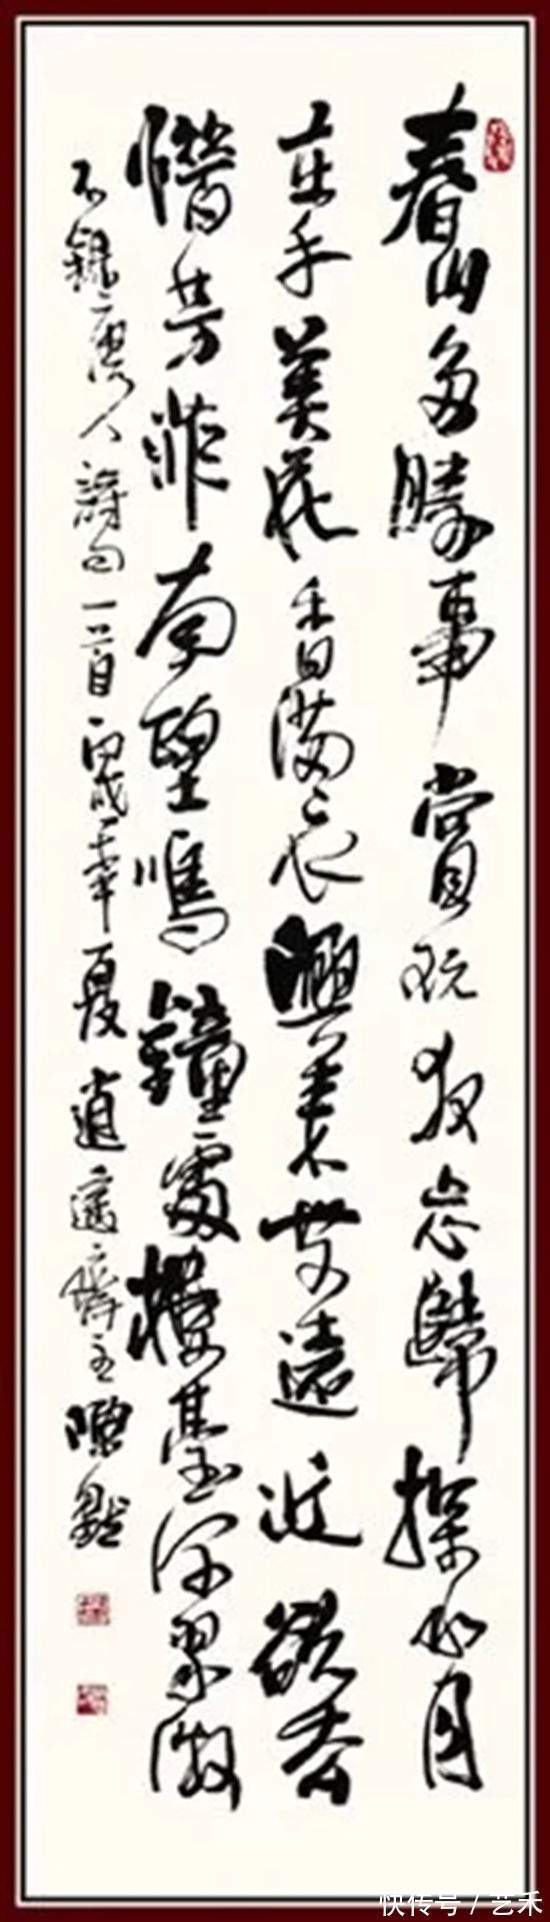 春山多勝事賞玩夜忘歸掬水月
在手弄花香滿衣興來無遠近欲去
惜芳菲南望鳴鐘處樓臺深翠微
右錄唐人詩句一首丙戌年夏逍遙齋主
快传号/艺禾